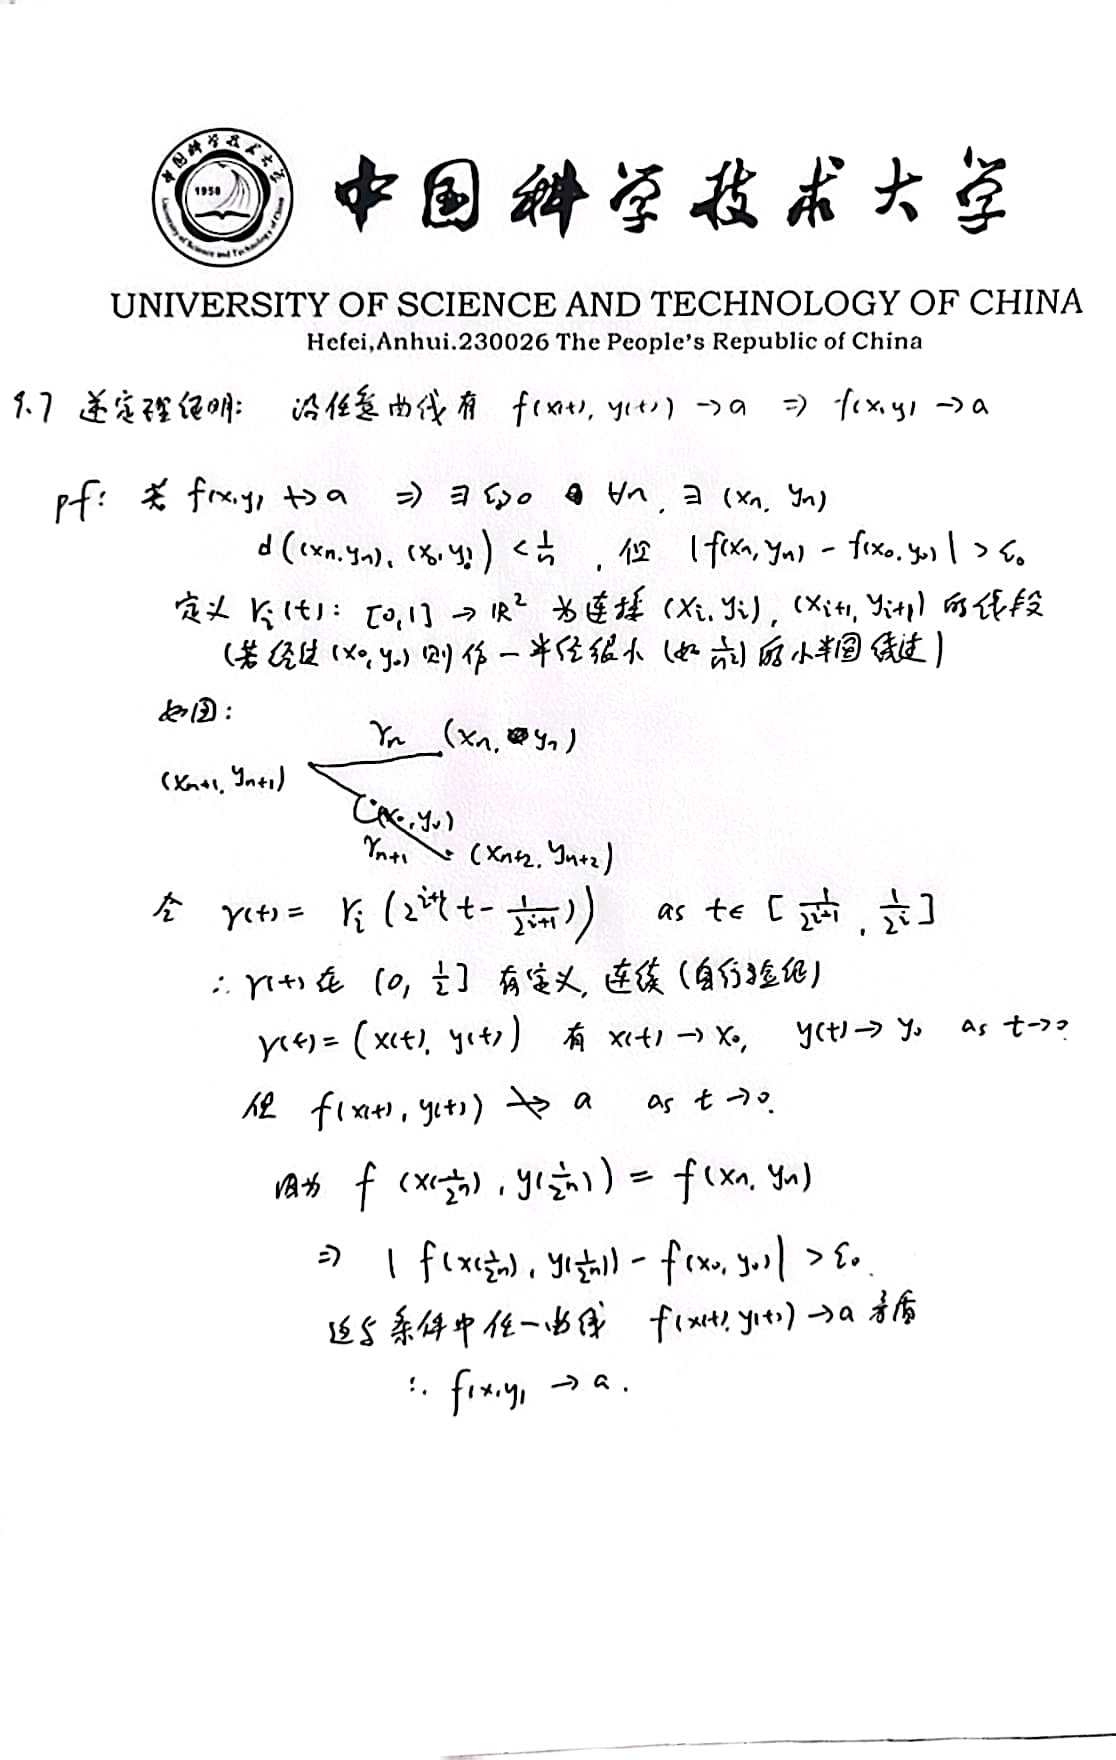 中国科学技术大学
1958
University of Science and Technology of China
中国科学技术大学
UNIVERSITY OF SCIENCE AND TECHNOLOGY OF CHINA
Hefei,Anhui.230026 The People's Republic of China
9.7 逆定理证明: 沿任意曲线有 f(x(t), y(t)) → a ⇒ f(x,y) → a
pf: 若 f(x,y) ↛ a ⇒ ∃ ε₀>0 ∀n, ∃ (xₙ, yₙ)
d((xₙ,yₙ), (x₀,y₀)) < 1/n , 但 |f(xₙ,yₙ) - f(x₀,y₀)| > ε₀
定义 γᵢ(t): [0,1] → ℝ² 为连接 (xᵢ,yᵢ), (xᵢ₊₁,yᵢ₊₁) 的线段
(若经过 (x₀,y₀) 则作一半径很小 (如 1/n²) 的小半圆绕过)
如图:
γₙ (xₙ, yₙ)
(xₙ₊₁, yₙ₊₁)
(x₀,y₀)
γₙ₊₁ (xₙ₊₂, yₙ₊₂)
令 γ(t) = γᵢ(2ⁱ⁺¹(t - 1/2ⁱ⁺¹)) as t∈[1/2ⁱ⁺¹, 1/2ⁱ]
∴ γ(t) 在 (0, 1/2] 有定义, 连续 (自行验证)
γ(t) = (x(t), y(t)) 有 x(t) → x₀, y(t) → y₀ as t→0
但 f(x(t), y(t)) ↛ a as t→0.
因为 f(x(1/2ⁿ), y(1/2ⁿ)) = f(xₙ, yₙ)
⇒ |f(x(1/2ⁿ), y(1/2ⁿ)) - f(x₀,y₀)| > ε₀.
这与条件中任一曲线 f(x(t), y(t)) → a 矛盾
∴ f(x,y) → a.